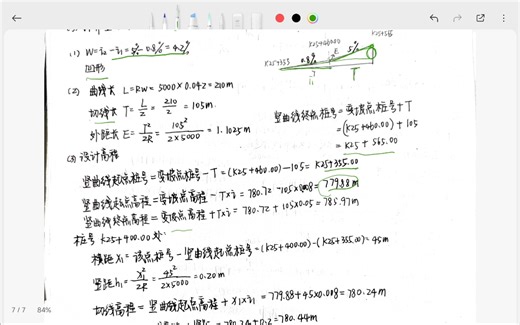 (1) W=i₂-i₁=5%-0.8%=4.2%
凹形
K25+460.00
K25+355
0.8%
5%
E
T
(2) 曲线长 L=RW=5000×0.042=210m
切线长 T=L/2=210/2=105m.
外距长 E=T²/2R=105²/2×5000=1.1025m
竖曲线终点桩号=变坡点桩号+T
=(K25+460.00)+105
=K25+565.00
(3) 设计高程
竖曲线起点桩号=变坡点桩号-T=(K25+460.00)-105=K25+355.00
竖曲线起点高程=变坡点高程-T×i=780.72-105×0.008=779.88m
竖曲线终点高程=变坡点高程+T×i=780.72+105×0.05=785.97m
桩号K25+400.00处:
横距X₁=该点桩号-竖曲线起点桩号=(K25+400.00)-(K25+355.00)=45m
竖距h₁=X₁²/2R=45²/2×5000=0.20m
切线高程=竖曲线起点高程+X₁×i=779.88+45×0.008=780.24m
=780.24+0.2=780.44m
7/7
84%